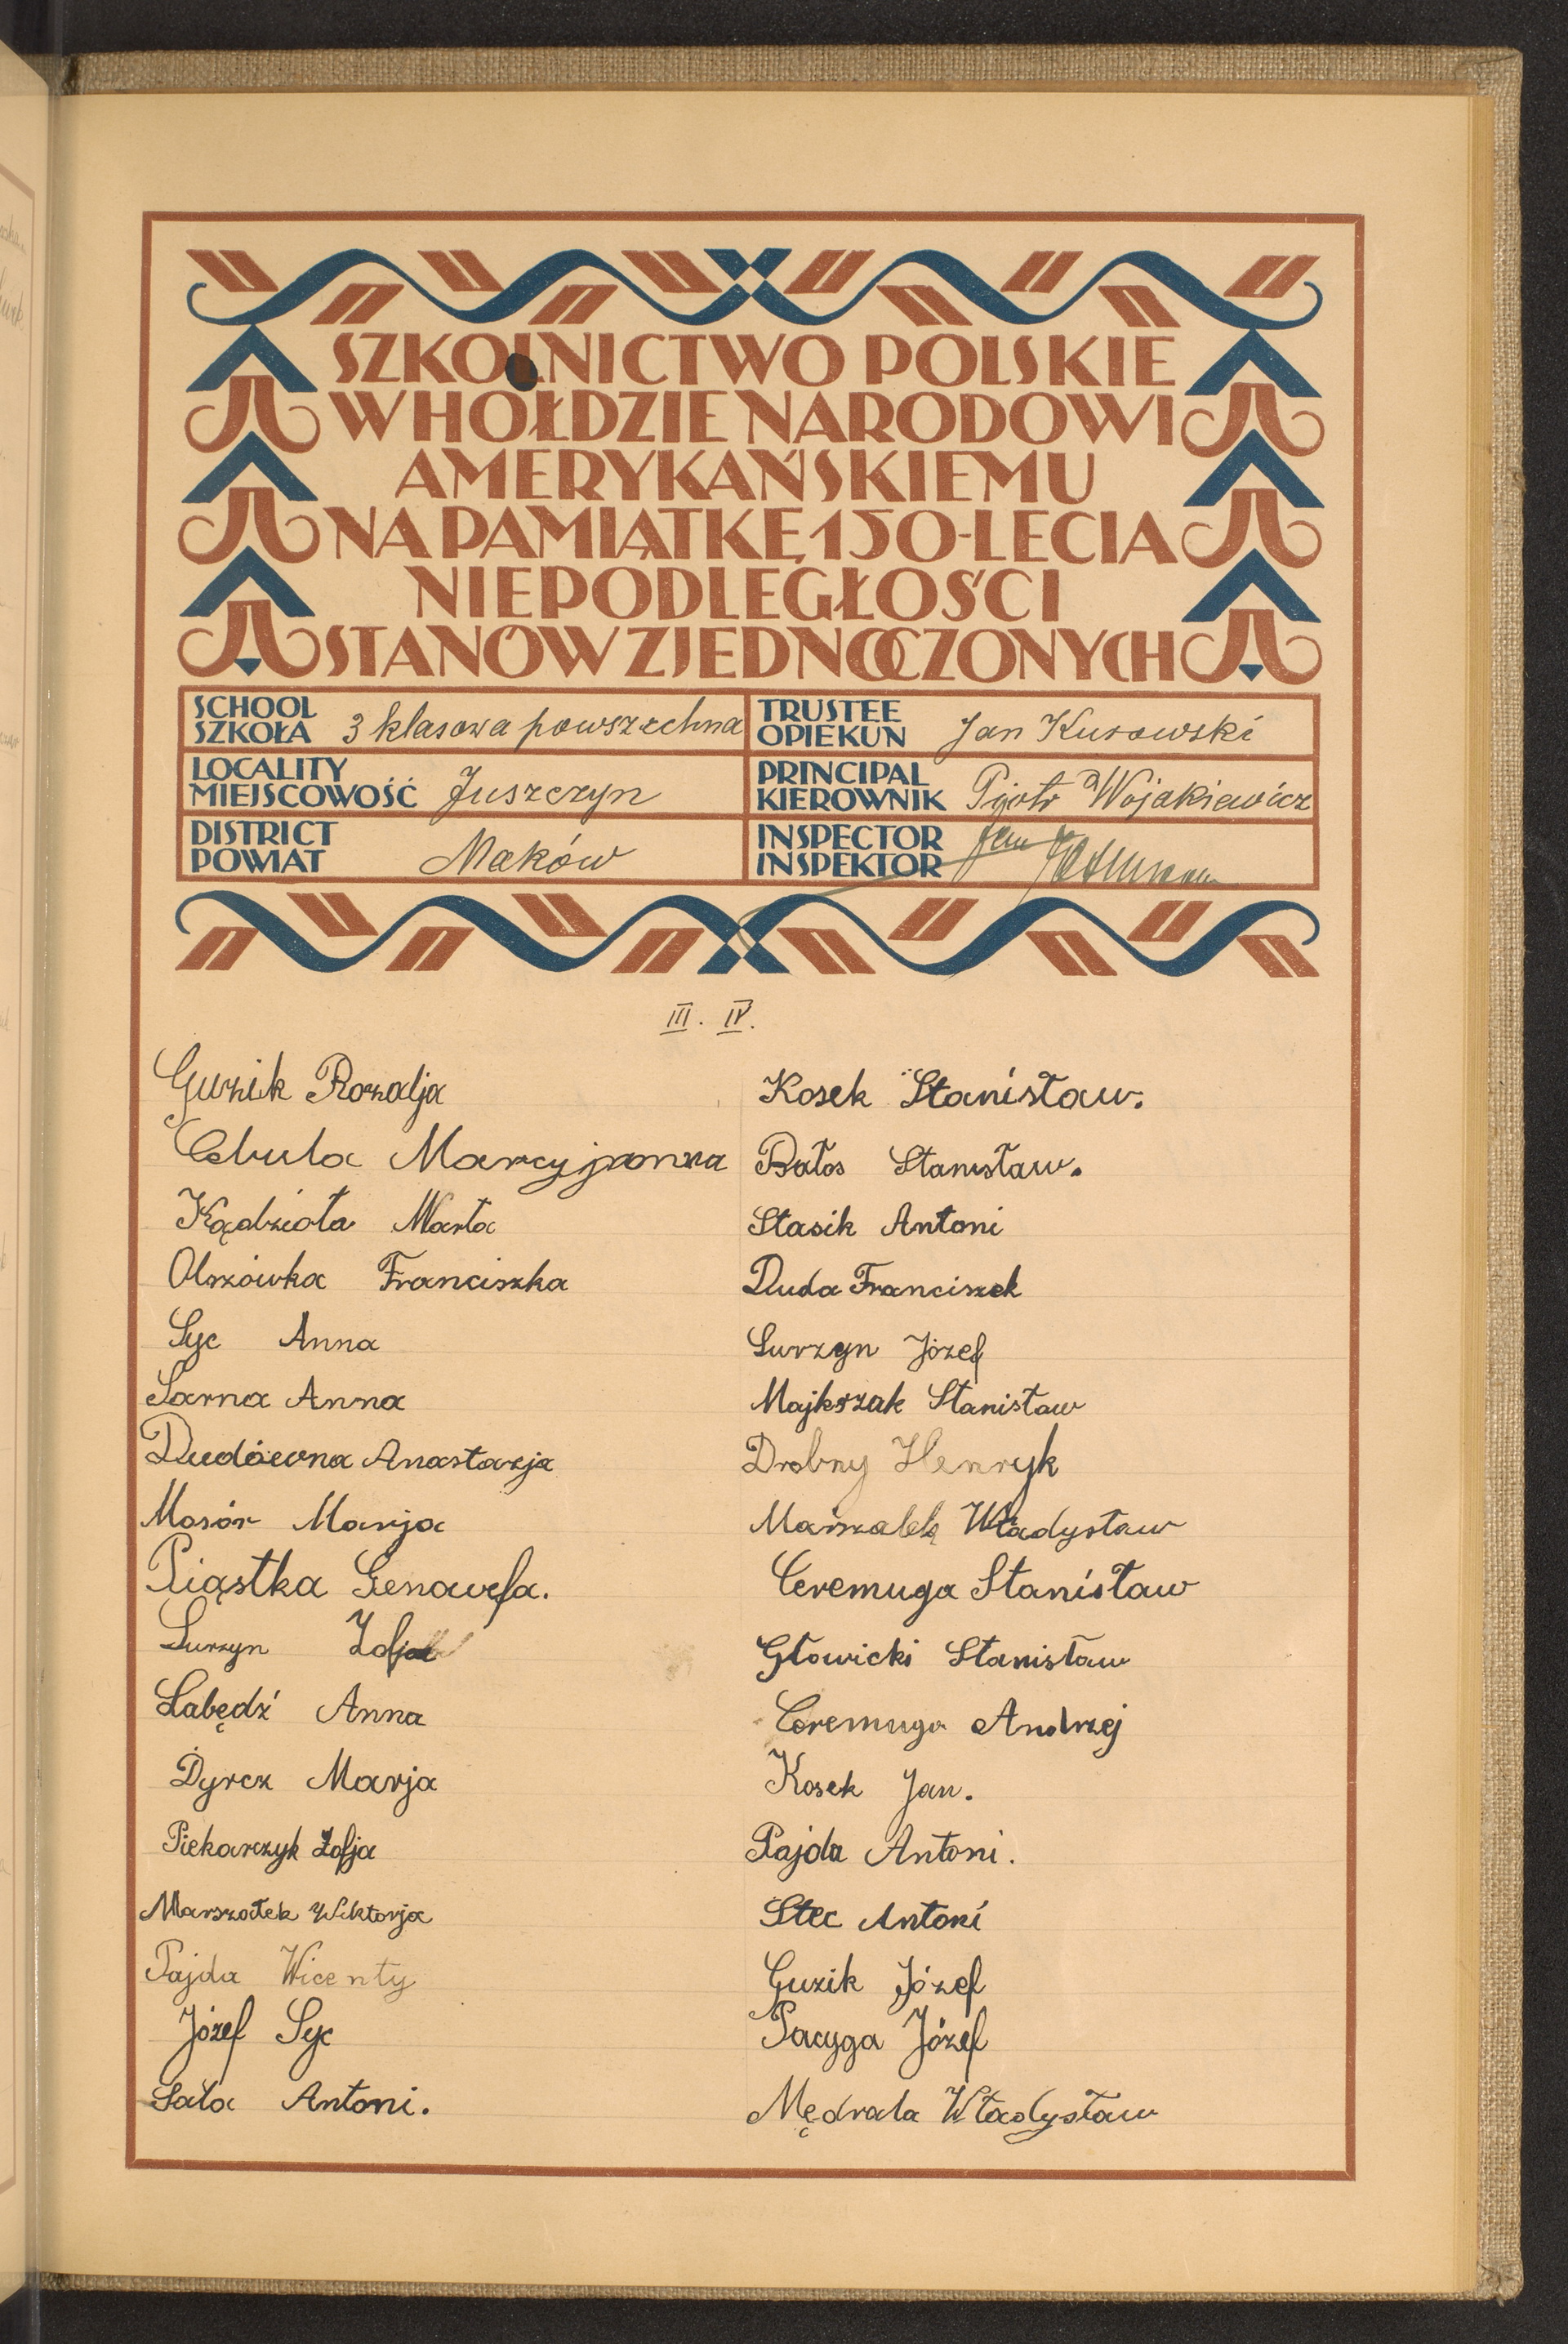 SZKOLNICTWO POLSKIE
W HOŁDZIE NARODOWI
AMERYKAŃSKIEMU
NA PAMIĄTKĘ 150-LECIA
NIEPODLEGŁOŚCI
STANÓW ZJEDNOCZONYCH
SCHOOL
SZKOŁA 3 klasowa powszechna
TRUSTEE
OPIEKUN Jan Kurowski
LOCALITY
MIEJSCOWOŚĆ Juszczyn
PRINCIPAL
KIEROWNIK Pjotr Wojakiewicz
DISTRICT
POWIAT Maków
INSPECTOR
INSPEKTOR Jan
III. IV.
Guzik Rozalja
Cebula Marcyjanna
Kądzioła Marta
Olszówka Franciszka
Syc Anna
Sarna Anna
Dudówna Anastazja
Mosór Marja
Piąstka Genowefa.
Surzyn Zofja
Łabędź Anna
Dyrcz Marja
Piekarczyk Zofja
Marszałek Wiktorja
Pajda Wicenty
Józef Syc
Sala Antoni.
Kosek Stanisław.
Bałos Stanisław.
Stasik Antoni
Duda Franciszek
Surzyn Józef
Majkszak Stanisław
Drobny Henryk
Marszałek Władysław
Ceremuga Stanisław
Głowicki Stanisław
Ceremuga Andrzej
Kosek Jan.
Pajda Antoni.
Stec Antoni
Guzik Józef
Pacyga Józef
Mędrala Władysław